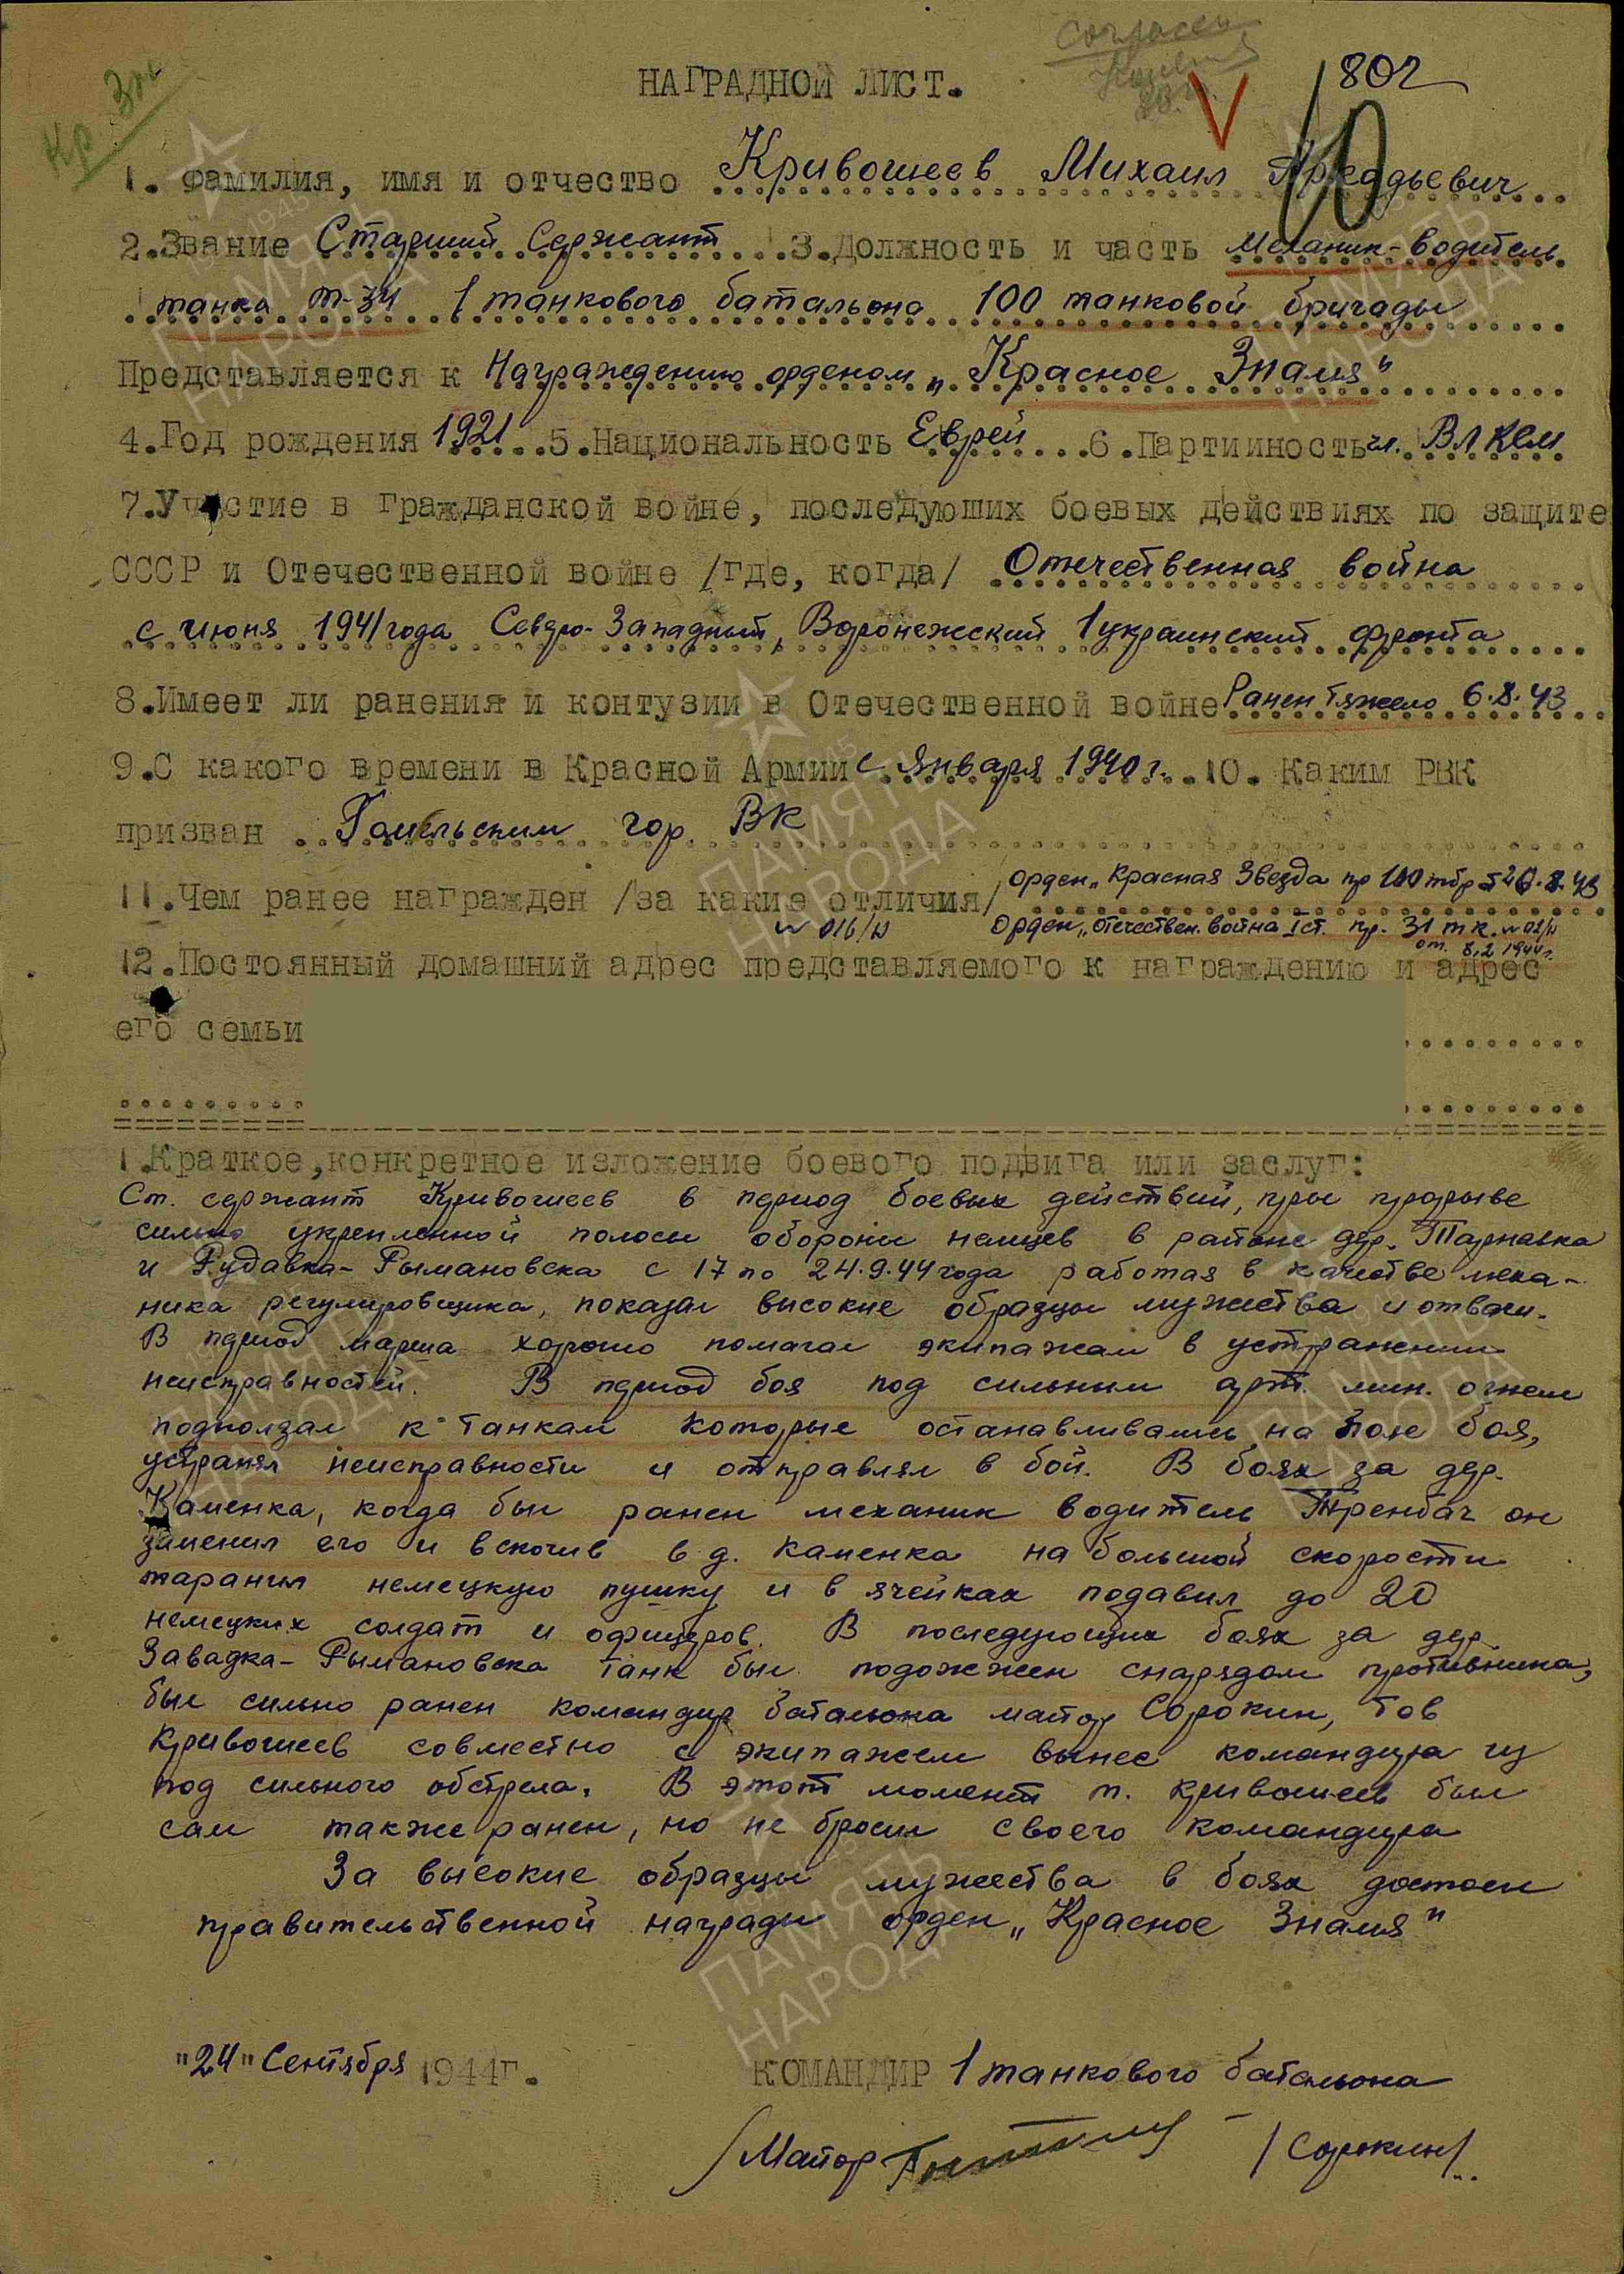 Согласен
802
Кр. Зн.
НАГРАДНОЙ ЛИСТ.
1. Фамилия, имя и отчество Кривошеев Михаил Аркадьевич
2. Звание Старший Сержант 3. Должность и часть механик-водитель
танка Т-34 1 танкового батальона 100 танковой бригады
Представляется к Награждению орденом „Красное Знамя"
4. Год рождения 1921 5. Национальность Еврей 6. Партийность чл. ВЛКСМ
7. Участие в гражданской войне, последуюших боевых действиях по защите
СССР и Отечественной войне /где, когда/ Отечественная война
с июня 1941 года Северо-Западный, Воронежский 1 украинский фронта
8. Имеет ли ранения и контузии в Отечественной войне Ранен тяжело 6.8.43
9. С какого времени в Красной Армии с января 1940 г. 10. Каким РВК
призван Гомельским гор. ВК
11. Чем ранее награжден /за какие отличия/ орден „Красная Звезда пр 100 тбр
№ 016/н Орден „Отечествен. война I ст. пр. 31 тк. № 02/н
от 8.2 1944 г.
12. Постоянный домашний адрес представляемого к награждению и адрес
его семьи
1. Краткое, конкретное изложение боевого подвига или заслуг:
Ст. сержант Кривошеев в период боевых действий, при прорыве
сильно укрепленной полосы обороны немцев в районе дер. Тарнавка
и Рудавка-Рымановска с 17 по 24.9.44 года работая в качестве меха-
ника регулировщика, показал высокие образцы мужества и отваги.
В период марша хорошо помогал экипажам в устранении
неисправностей. В период боя под сильным арт. мин. огнем
подползал к танкам которые останавливались на поле боя,
устранял неисправности и отправлял в бой. В боях за дер.
Каменка, когда был ранен механик водитель Тренбач он
заменил его и вскочив в д. Каменка на большой скорости
таранил немецкую пушку и в ячейках подавил до 20
немецких солдат и офицеров. В последующих боях за дер.
Завадка-Рымановска танк был подожжен снарядом противника,
был сильно ранен командир батальона майор Сорокин, тов
Кривошеев совместно с экипажем вынес командира из
под сильного обстрела. В этот момент т. Кривошеев был
сам также ранен, но не бросил своего командира
За высокие образцы мужества в боях достоен
правительственной награды орден „Красное Знамя"
"24" Сентября 1944г.
КОМАНДИР 1 танкового батальона
/Майор /Сорокин/
ПАМЯТЬ
НАРОДА